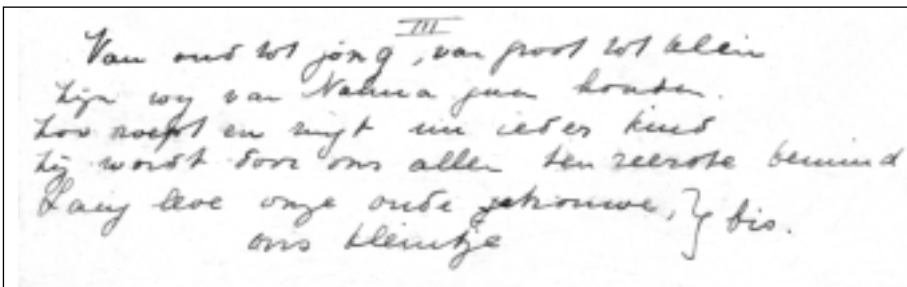 III
Van oud tot jong, van groot tot klein
zijn wy van Nanna gaan houden.
Zoo roept en zingt nu ieder kind
Zij wordt door ons allen ten zeerste bemind
Lang leve onze oude getrouwe, } bis.
ons kleintje